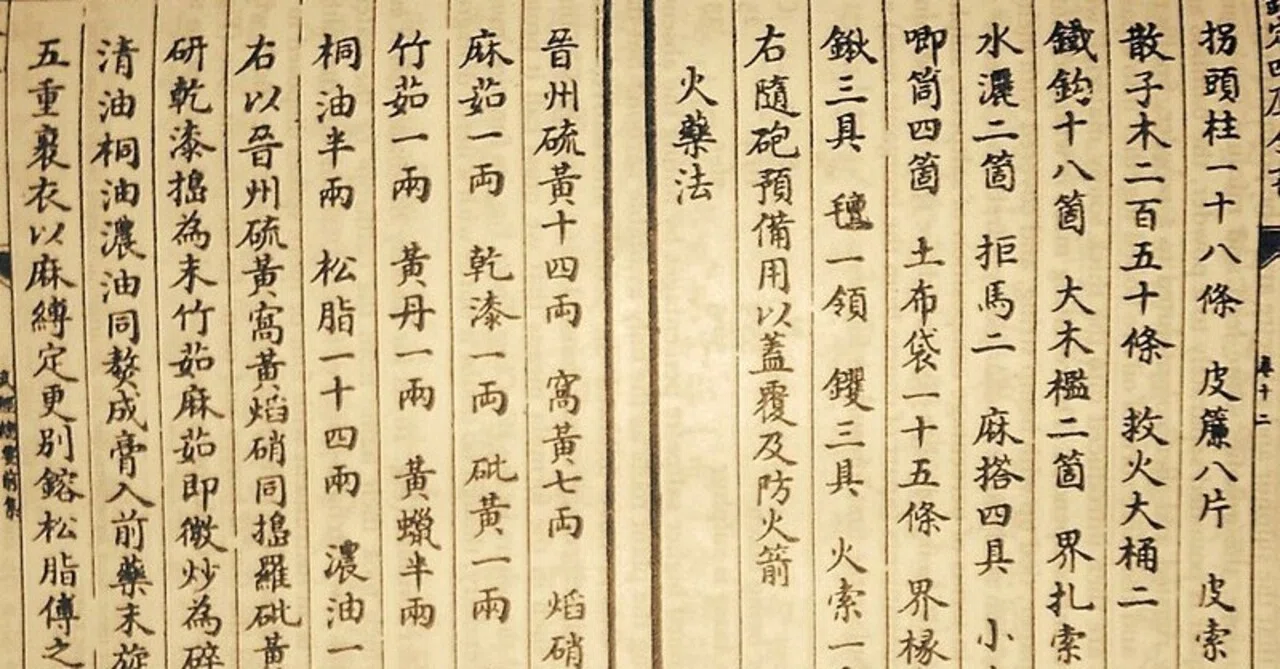 拐頭柱一十八條　皮簾八片　皮索
散子木二百五十條　救火大桶二
鐵鈎十八箇　大木檻二箇　界扎索
水濹二箇　拒馬二　麻搭四具　小
唧筒四箇　土布袋一十五條　界椽
鍬三具　氊一領　钁三具　火索一
右隨砲預備用以蓋覆及防火箭
火藥法
晉州硫黃十四兩　窩黃七兩　焰硝
麻茹一兩　乾漆一兩　砒黃一兩
竹茹一兩　黃丹一兩　黃蠟半兩
桐油半兩　松脂一十四兩　濃油一
右以晉州硫黃窩黃焰硝同搗羅砒黃
研乾漆搗為末竹茹麻茹即微炒為碎
清油桐油濃油同熬成膏入前藥末旋
五重裹衣以麻縛定更別鎔松脂傅之
卷十二